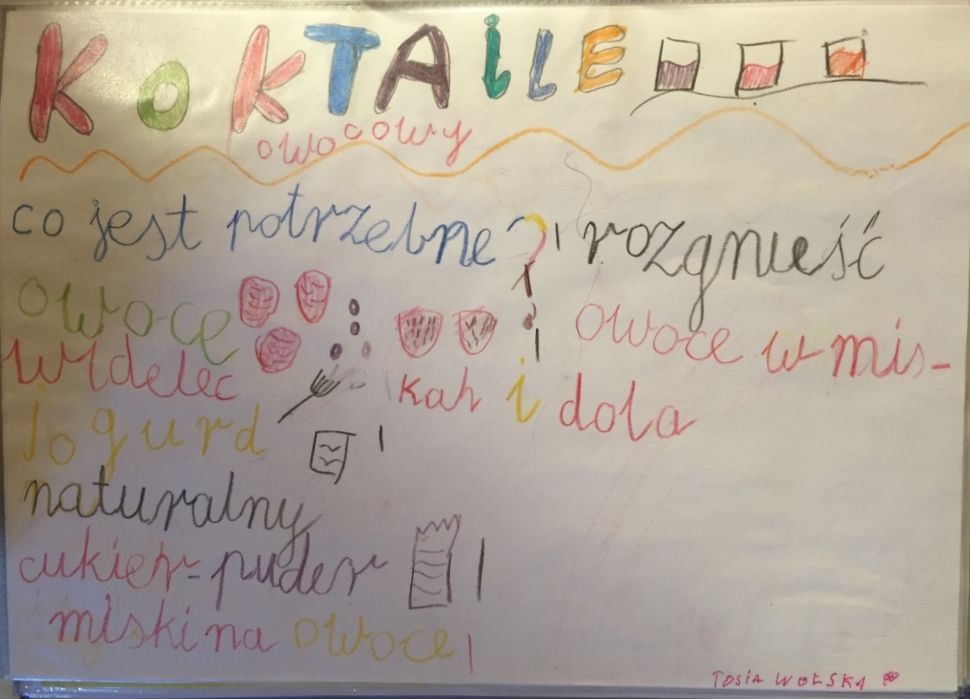 KOKTAILE
owocowy
co jest potrzebne ?
owoce
widelec
Jogurd
naturalny
cukier-puder
miski na owoce
rozgnieść
owoce w mis-
kah i dola
TOSIA WOLSKA